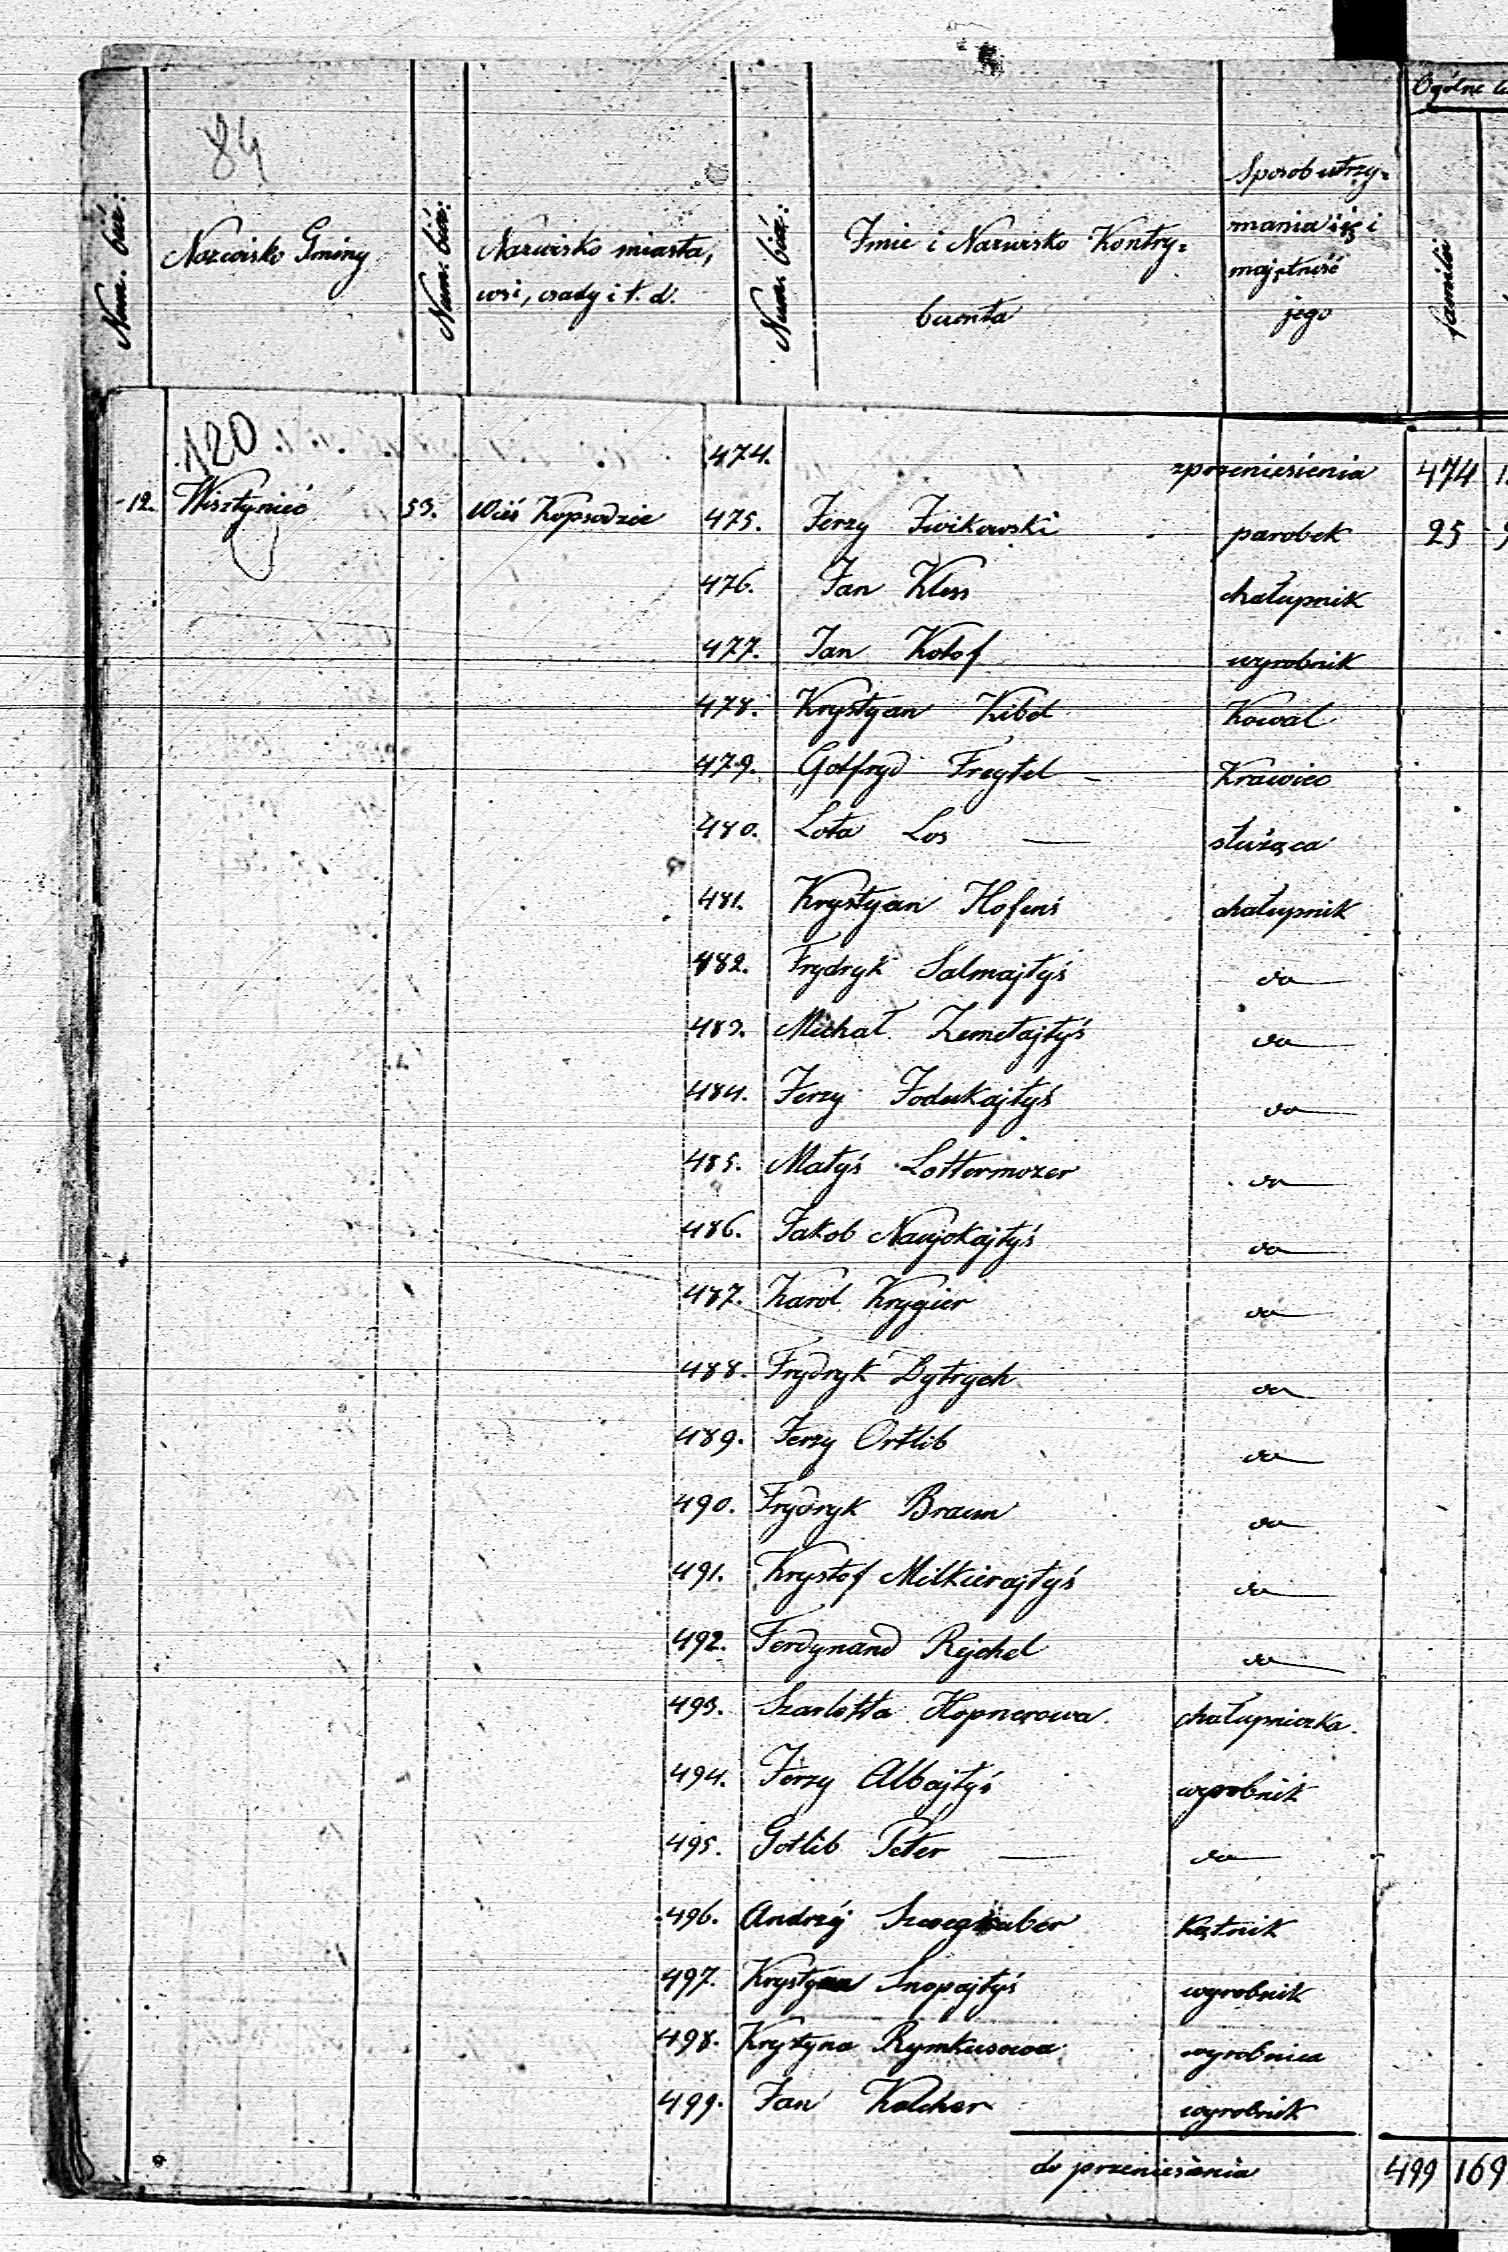 84
Num. bież:
Nazwisko Gminy
Num. bież:
Nazwisko miasta,
wsi, osady i t. d.
Num. bież:
Imie i Nazwisko Kontry-
buenta
Sposob utrzy-
mania się i
majętność
jego
Ogólne
familii
120
474. z przeniesienia 474
12. Wisztyniec 53. Wieś Kopsodzie 475. Jerzy Zwikowski parobek 25
476. Jan Kless chałupnik
477. Jan Kolof wyrobnik
478. Krystyan Kibel Kowal
479. Gotfryd Freytel Krawiec
480. Lota Los służąca
481. Krystyan Hofens chałupnik
482. Frydryk Salmajtyś do
483. Michał Zemetajtyś do
484. Jerzy Jodukajtyś do
485. Matyś Lottermozer do
486. Jakob Nawjokajtyś do
487. Karol Krygier do
488. Frydryk Dytrych do
489. Jerzy Ortlib do
490. Frydryk Braun do
491. Krystof Milkierajtyś do
492. Ferdynand Rejchel do
493. Szarlotta Hopnerowa chałupniczka
494. Jerzy Albajtyś wyrobnik
495. Gotlib Peter do
496. Andrzéj kątnik
497. Krystyan Snopajtyś wyrobnik
498. Krystyna Rymkusowa wyrobnica
499. Jan Kelcher wyrobnik
do przeniesienia 499 169